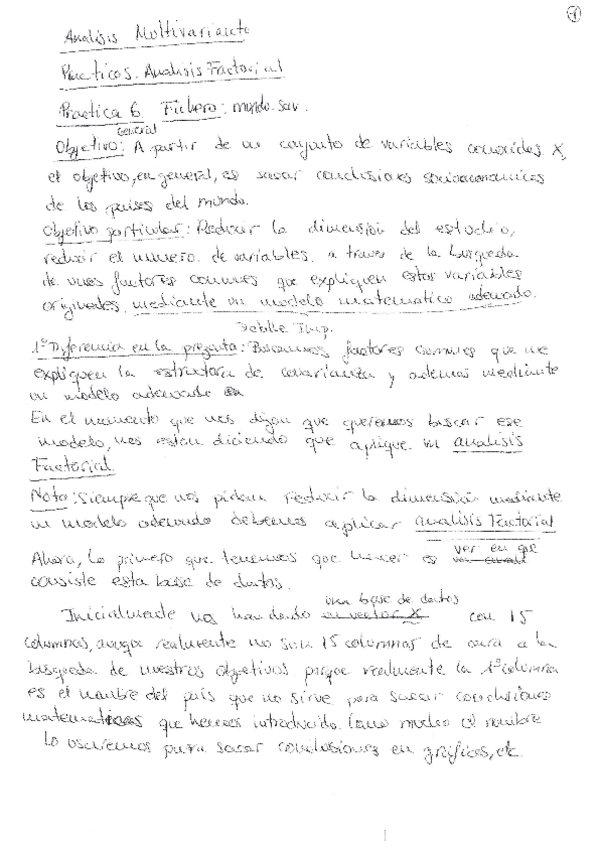 1
Analisis Multivariante
Practicas. Analisis Factorial
Practica 6 Fichero: mundo.sav.
General
Objetivo: A partir de un conjunto de variables conocidas X,
el objetivo, en general, es sacar conclusiones socioeconomicas
de los paises del mundo.
Objetivo particular: Reducir la dimensión del estudio,
reducir el numero de variables a traves de la busqueda
de unos factores comunes que expliquen estas variables
originales mediante un modelo matematico adecuado.
Detalle Imp.
1º Diferencia en la pregunta: Buscamos factores comunes que me
expliquen la estructura de covarianza y ademas mediante
un modelo adecuado
En el momento que nos digan que queremos buscar ese
modelo, nos estan diciendo que aplique un analisis
Factorial.
Nota: Siempre que nos pidan reducir la dimensión mediante
un modelo adecuado debemos aplicar analisis Factorial
Ahora, lo primero que tenemos que hacer es ver en que
consiste esta base de datos.
una base de datos
Inicialmente nos han dado un vector X con 15
columnas, aunque realmente no son 15 columnas de cara a la
busqueda de nuestros objetivos porque realmente la 1ª columna
es el nombre del país que no sirve para sacar conclusiones
matematicas que hemos introducido. Como mucho el nombre
lo usaremos para sacar conclusiones en gráficas, etc.